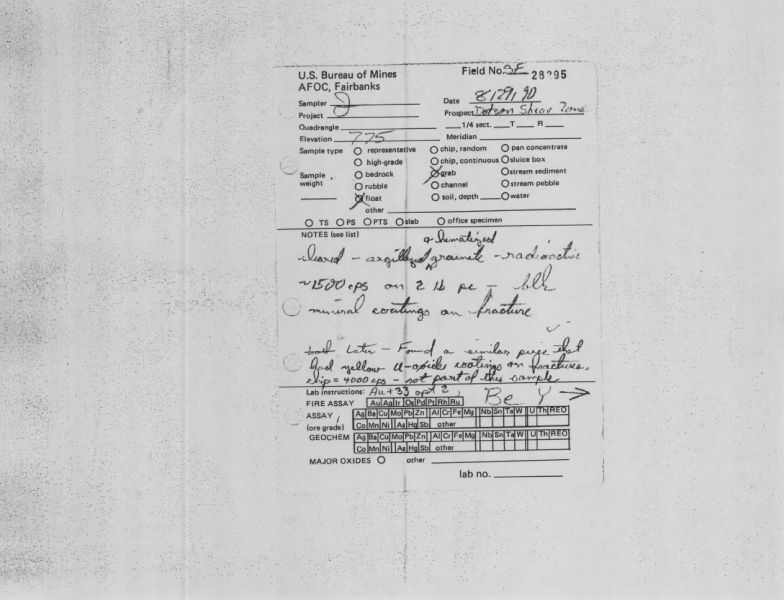 U.S. Bureau of Mines
AFOC, Fairbanks
Field No. SF 28295
Sampler
Date 8/29/90
Project
Prospect Dotson Shear Zone
Quadrangle
1/4 sect. T R
Elevation 775
Meridian
Sample type representative chip, random pan concentrate
high-grade chip, continuous sluice box
Sample weight bedrock grab stream sediment
rubble channel stream pebble
float soil, depth water
other
TS PS PTS slab office specimen
NOTES (see list)
& hematized
sheared - argillized granite - radioactive
~1500 cps on 2 lb pc - blk
mineral coatings on fracture
Later - Found a similar piece that
had yellow U-oxide coatings on fractures.
chip = 4000 cps - not part of this sample
Lab instructions: Au + 33 opt 2,
Be Y →
FIRE ASSAY Au Ag Ir Os Pd Pt Rh Ru
ASSAY Ag Ba Cu Mo Pb Zn Al Cr Fe Mg Nb Sn Ta W U Th REO
(ore grade) Co Mn Ni As Hg Sb other
GEOCHEM Ag Ba Cu Mo Pb Zn Al Cr Fe Mg Nb Sn Ta W U Th REO
Co Mn Ni As Hg Sb other
MAJOR OXIDES other
lab no.